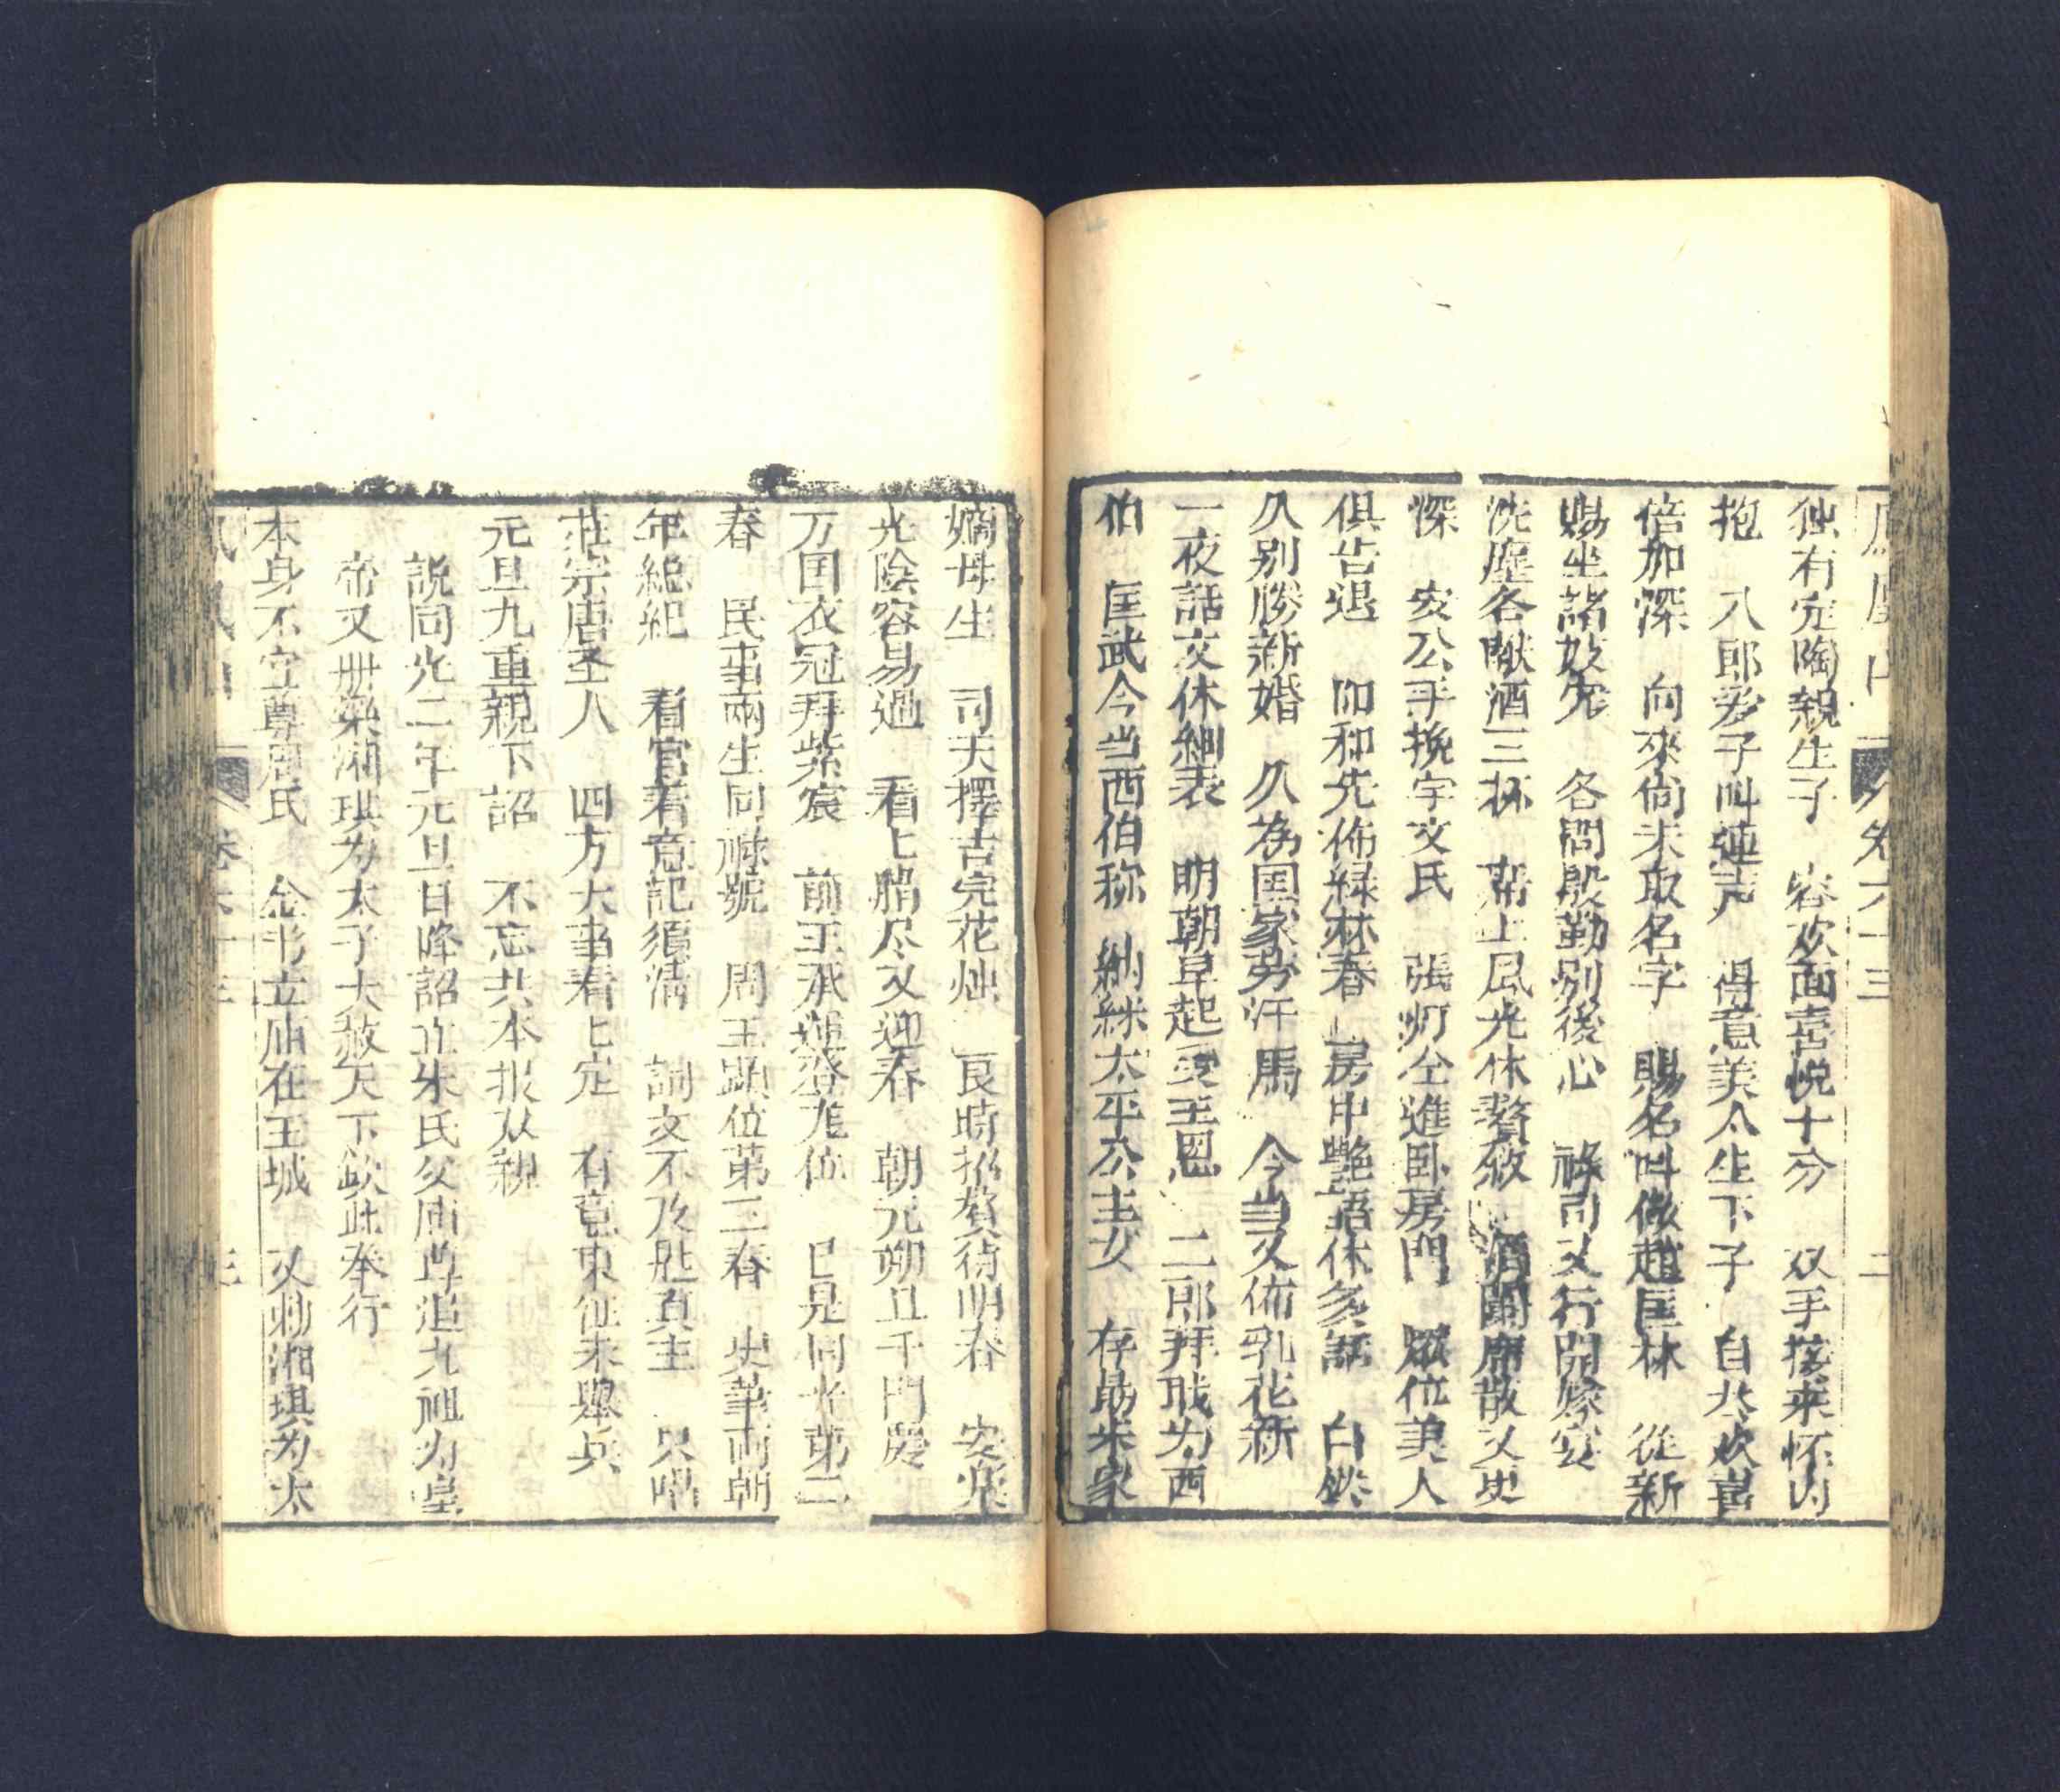 卷六十三　二
独有定陶親生子　容欢面喜悦十分　双手接来怀内
抱　八郎爹子叫連声　得意美人生下子　自然欢喜
倍加深　向來尚未取名字　賜名叫做趙匡林　從新
賜坐諸妓先　各問殷勤別後心　禄司又行開嫁宴
洗塵各献酒三杯　席上風光休贅敘　酒闌席散又更
深　安公手挽宇文氏　張灯仝進卧房門　眾位美人
俱告退　即和先佈緑林春　房中艷語休多話　自然
久别勝新婚　久為国家劳汗馬　今当又佈乳花新
一夜話文休細表　明朝早起受王恩　二郎拜职为西
伯　匡武今当西伯称　納綵太平公主女　存勗朱家
嫡母生　司天擇吉完花烛　良時招贅待明春　安樂
光陰容易過　看七腊尽又迎春　朝元朔旦千門慶
万国衣冠拜紫宸　前王承運登龙位　已是同光第二
春　民事兩生同禄號　周王踢位第二春　史筆两朝
年総紀　看官着意記須清　詞文不及壯真主　只唱
莊宗唐圣人　四方大事看七定　有意東征未舉兵
元旦九重親下詔　不忘共本报双親
説同光二年元旦日降詔立朱氏父庙尊追九祖为皇
帝又册梁湘琪为太子大赦天下欽此奉行
本身不宜尊周氏　金書立庙在王城　又勅湘琪为太
卷六十三　三